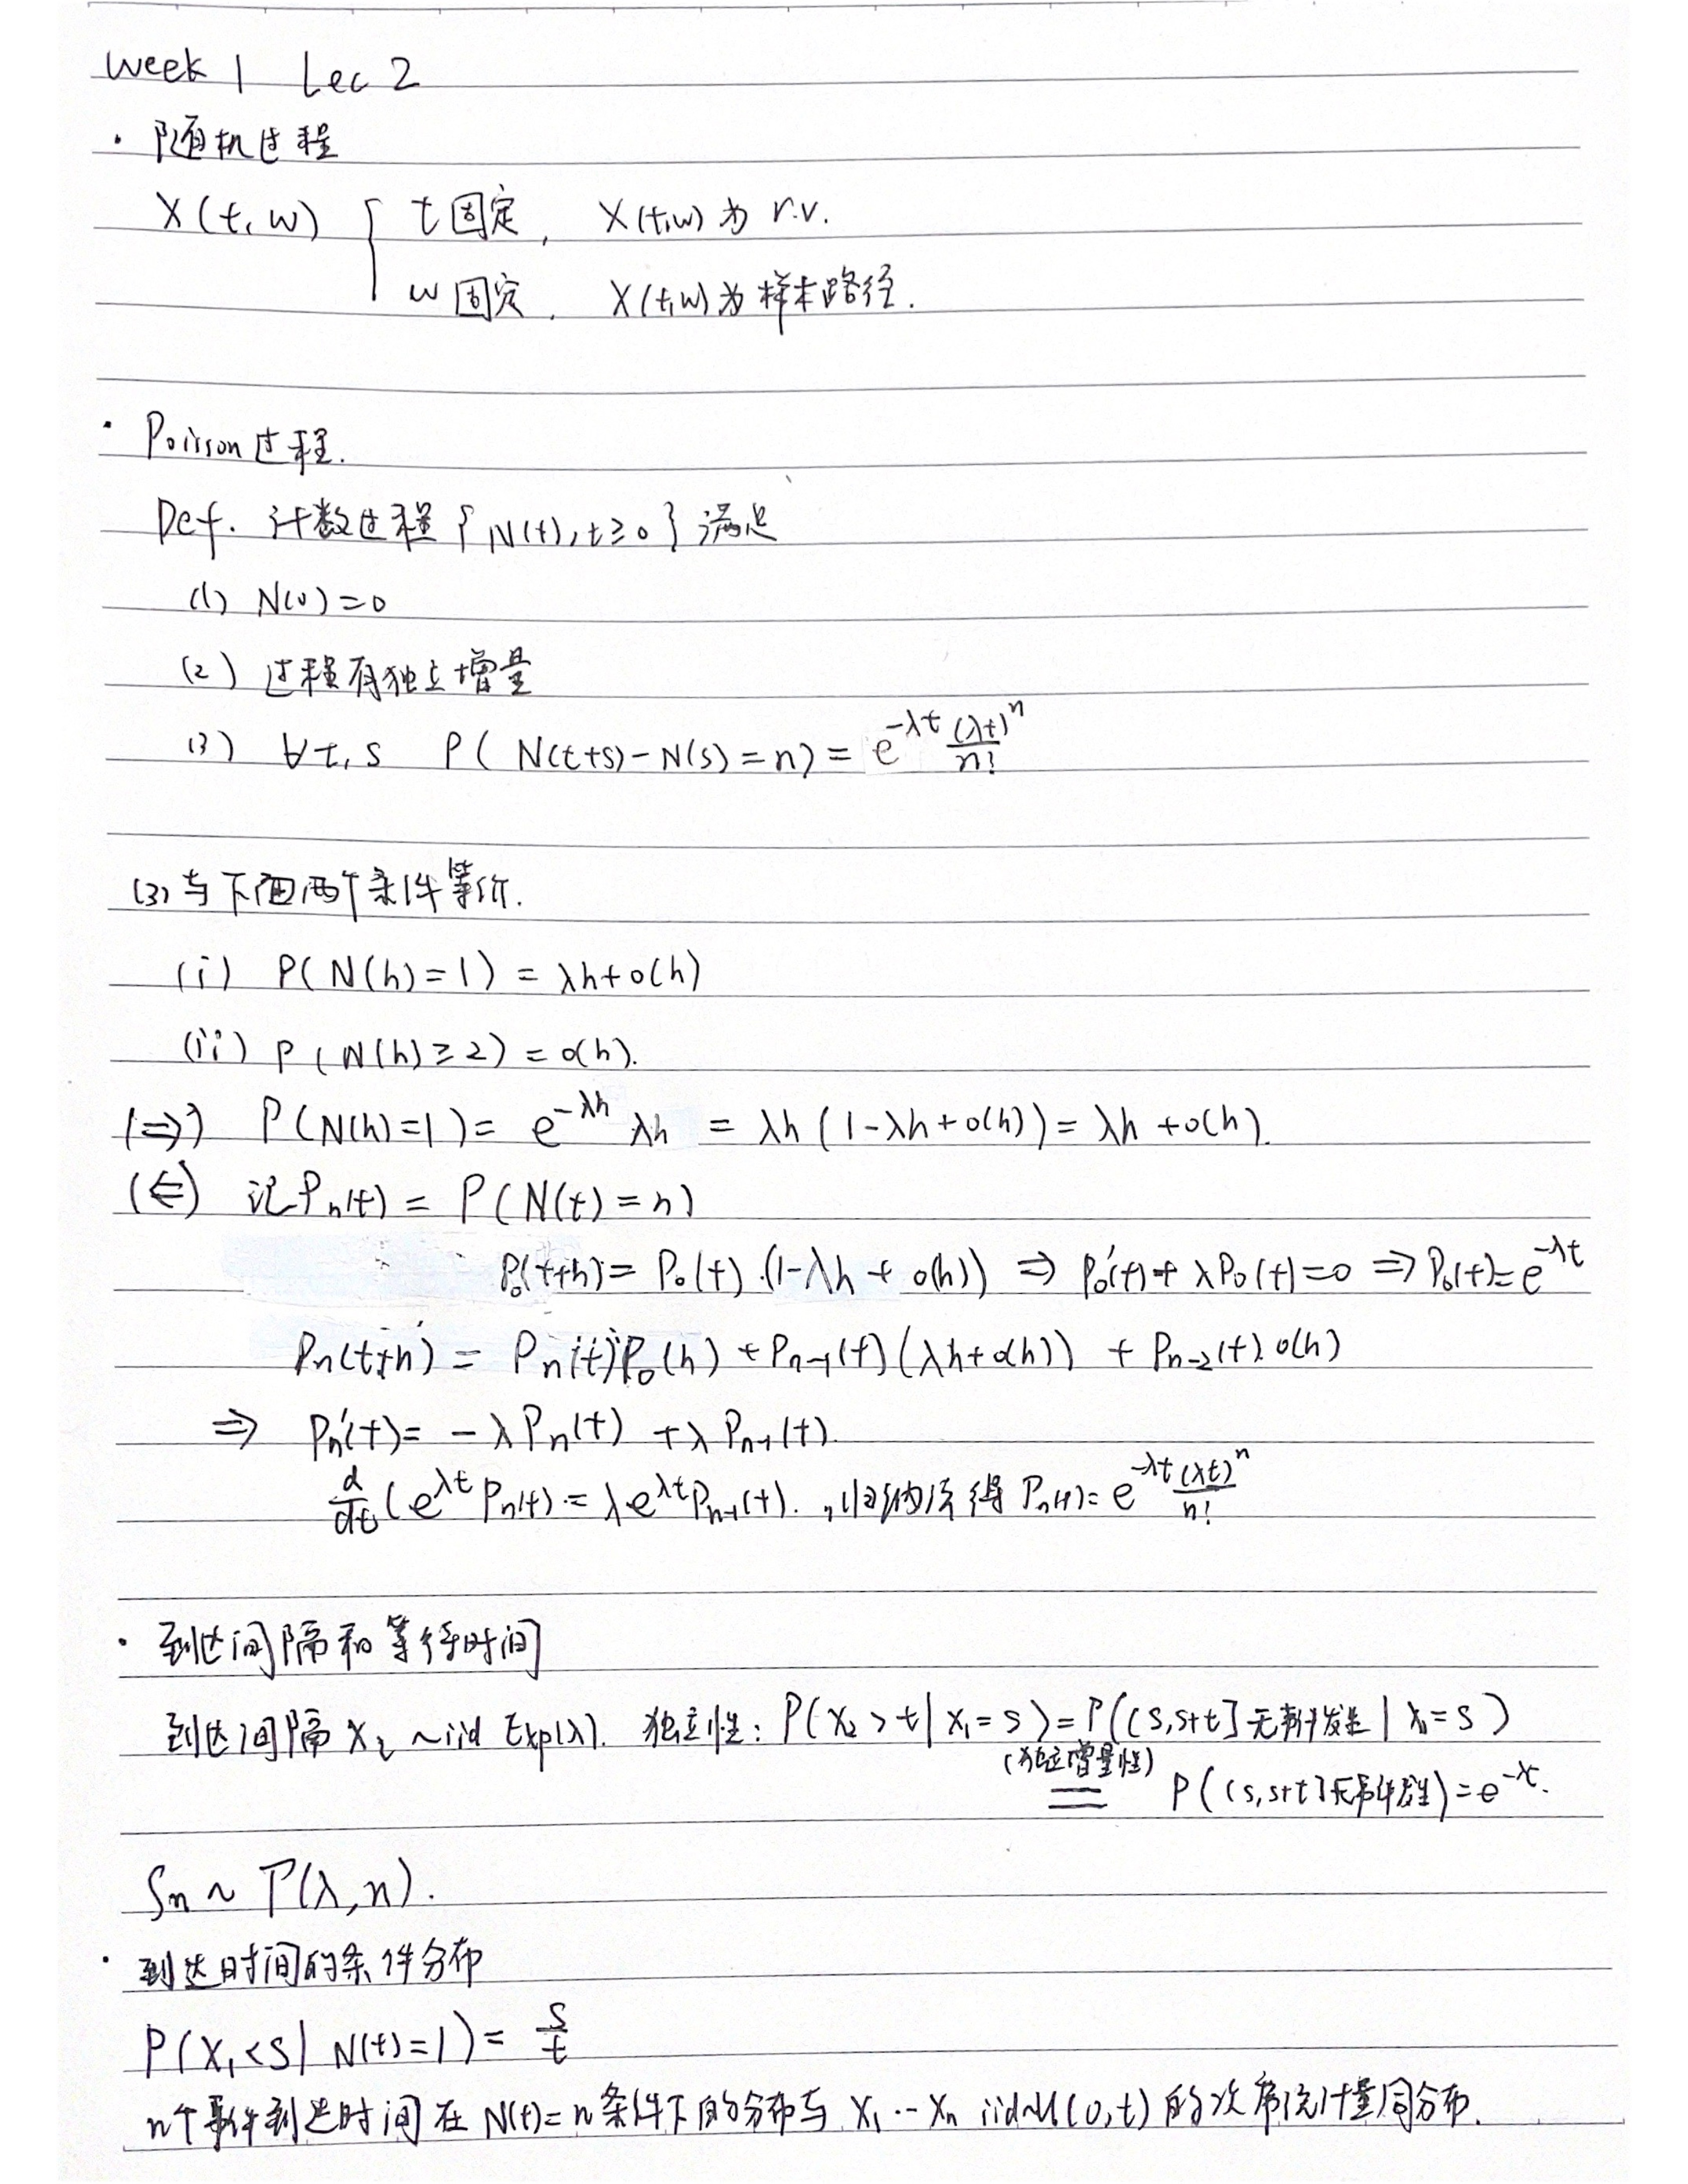 Week 1 Lec 2
· 随机过程
X(t,w) { t固定, X(t,w)为 r.v.
w固定, X(t,w)为样本路径.
· Poisson过程.
Def. 计数过程{N(t), t≥0}满足
(1) N(0)=0
(2) 过程有独立增量
(3) ∀t,s P(N(t+s)-N(s)=n)=e^{-λt} (λt)^n/n!
(3)与下面两个条件等价.
(i) P(N(h)=1)=λh+o(h)
(ii) P(N(h)≥2)=o(h).
(⇒) P(N(h)=1)= e^{-λh} λh = λh(1-λh+o(h))=λh+o(h).
(⇐) 记Pn(t)= P(N(t)=n)
P₀(t+h)= P₀(t).(1-λh+o(h)) ⇒ P₀'(t)+λP₀(t)=0 ⇒P₀(t)=e^{-λt}
Pn(t+h) = Pn(t)P₀(h)+Pn-1(t)(λh+o(h)) + Pn-2(t).o(h)
⇒ Pn'(t)= -λPn(t) +λPn-1(t).
d/dt(e^{λt}Pn(t)=λe^{λt}Pn-1(t). ,归纳法得 Pn(t)= e^{-λt} (λt)^n/n!
· 到达间隔和等待时间
到达间隔 X₂ ~iid Exp(λ). 独立性: P(X₂>t|X₁=s)=P((s,s+t]无事件发生|X₁=s)
(独立增量性) = P((s,s+t]无事件发生)=e^{-λt}.
Sn ~ Γ(λ,n).
· 到达时间的条件分布
P(X₁<s| N(t)=1)= s/t
n个事件到达时间在 N(t)=n条件下的分布与 X₁…Xn iid~U(0,t)的次序统计量同分布.